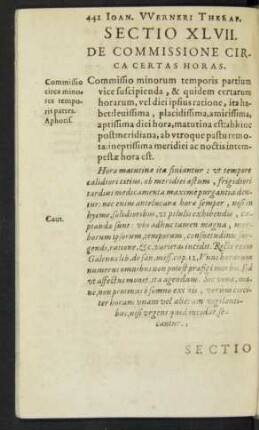 442 IOAN. VVERNERI THERAP.
SECTIO XLVII.
DE COMMISSIONE CIR-
CA CERTAS HORAS.
Commissio
circa mino-
res tempo-
ris partes.
Aphoris.
Commissio minorum temporis partium
vice suscipienda, & quidem certarum
horarum, vel diei ipsius ratione, ita ha-
bet: leuissima, placidissima, amicissima,
aptissima diei hora, matutina est: ab hinc
postmeridiana, ab vtroque pastu remo-
ta: ineptissima meridiei ac noctis intem-
pestæ hora est.
Horæ matutinæ ita finiantur: vt tempore
calidiori citius, ab meridiei æstum, frigidiori
tardius medicamenta maxime purgantia den-
tur: nec enim antelucanæ horæ semper, nisi in
Caut.
hyeme, solidioribus, vt pilulis exhibendis,
ptandæ sunt: vbi adhuc tamen magna,
borum ipsorum, temporum, consuetudinis
gendi, ratione, &c. varietas incidit.
Galenus lib. de san.
numerus omnibus non potest
vt affectus monet, ita agendum.
ue, non protinus è somno
ter horam vnam vel alteram vigilanti-
bus, nisi vrgens quid incidat
cantur.
SECTIO